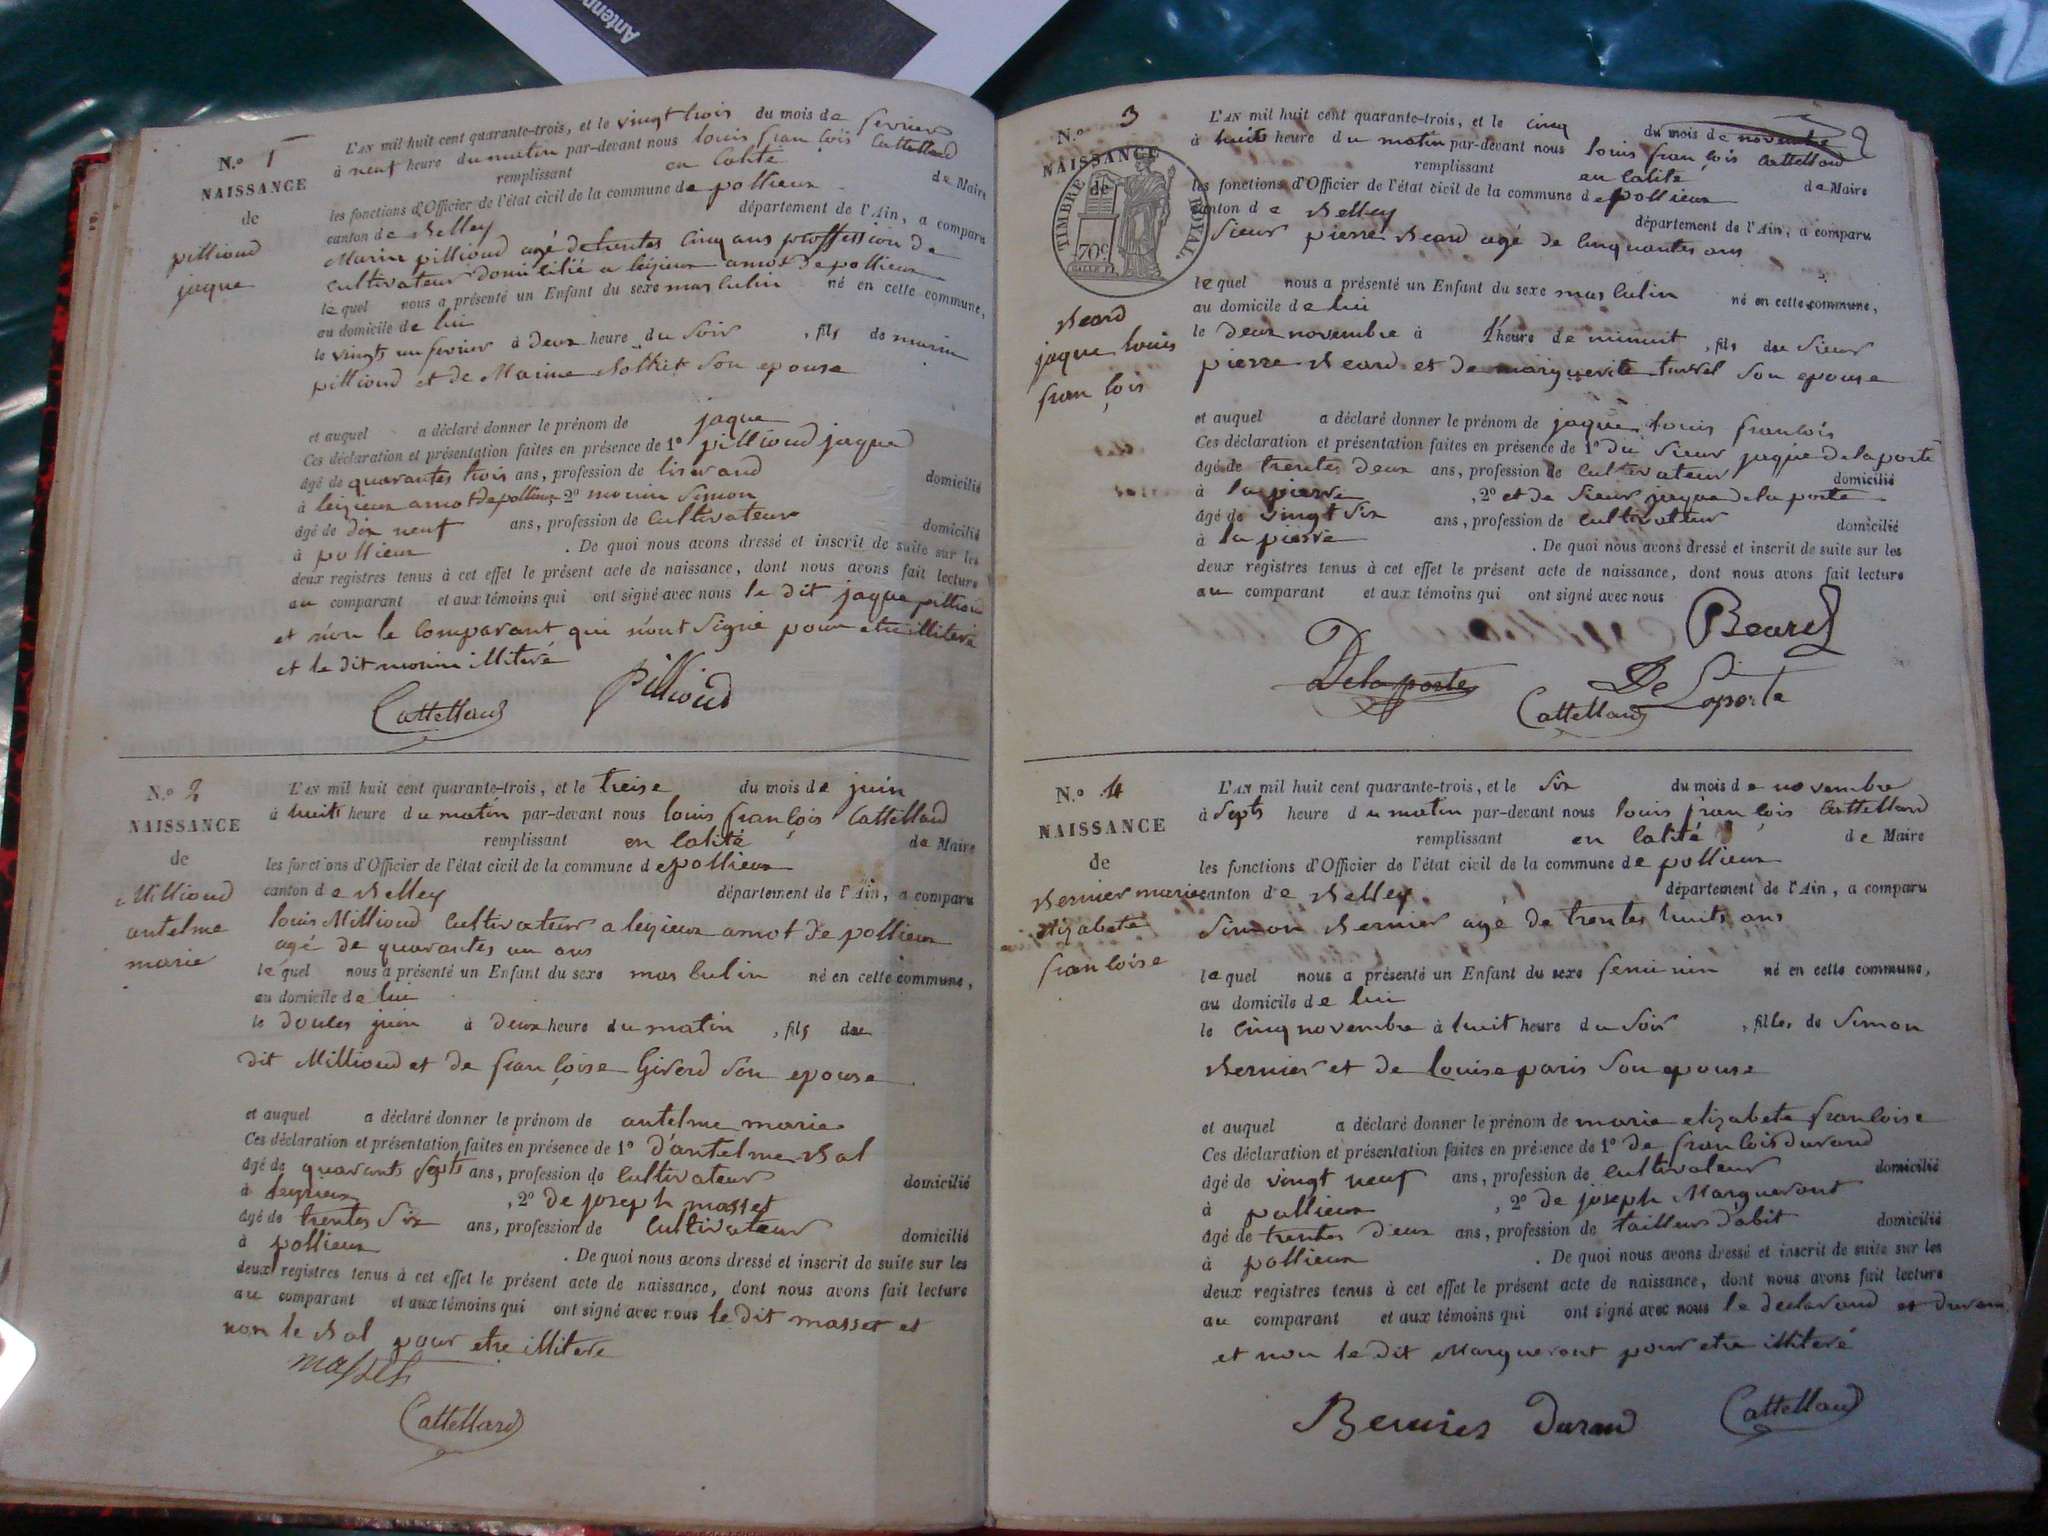 Antenn
N.º 1
NAISSANCE
de
pillioud
jaque
L'AN mil huit cent quarante-trois, et le vingt trois du mois de fevrier
à neuf heure du matin par-devant nous louis francois Cattelland
remplissant en calité de Maire
les fonctions d'Officier de l'état civil de la commune de pollieux
canton de Belley département de l'Ain, a comparu
Marin pillioud agé de trentes cinq ans proffession de
cultivateur domicilié a leizieux amot de pollieux
le quel nous a présenté un Enfant du sexe masculin né en cette commune,
au domicile de lui
le vingts un fevrier à deux heure du soir, fils de marin
pillioud et de Marine son epouse
et auquel a déclaré donner le prénom de jaque
Ces déclaration et présentation faites en présence de 1º pillioud jaque
âgé de quarantes trois ans, profession de domicilié
à leizieux amot de pollieux, 2º monin Simon
âgé de dix neuf ans, profession de cultivateur domicilié
à pollieux. De quoi nous avons dressé et inscrit de suite sur les
deux registres tenus à cet effet le présent acte de naissance, dont nous avons fait lecture
au comparant et aux témoins qui ont signé avec nous le dit jaque pillioud
et non le comparant qui n'ont signé pour etre illiteré
et le dit monin illiteré
Cattelland Pillioud
N.º 2
NAISSANCE
de
Millioud
antelme
marie
L'AN mil huit cent quarante-trois, et le treise du mois de juin
à huits heure du matin par-devant nous louis francois Cattelland
remplissant en calité de Maire
les fonctions d'Officier de l'état civil de la commune de pollieux
canton de Belley département de l'Ain, a comparu
louis Millioud cultivateur a leizieux amot de pollieux
agé de quarantes un ans
le quel nous a présenté un Enfant du sexe masculin né en cette commune,
au domicile de lui
le douses juin à deux heure du matin, fils du
dit Millioud et de françoise Giverd son epouse
et auquel a déclaré donner le prénom de antelme marie
Ces déclaration et présentation faites en présence de 1º d'antelme Bal
âgé de quarants septs ans, profession de cultivateur domicilié
à leyzieux, 2º de joseph masset
âgé de trentes six ans, profession de cultivateur domicilié
à pollieux. De quoi nous avons dressé et inscrit de suite sur les
deux registres tenus à cet effet le présent acte de naissance, dont nous avons fait lecture
au comparant et aux témoins qui ont signé avec nous le dit masset et
non le Bal pour etre illiteré
masset
Cattelland
N.º 3
NAISSANCE
de
TIMBRE ROYAL.
70c
Beard
jaque louis
francois
L'AN mil huit cent quarante-trois, et le cinq du mois de novembre
à huits heure du matin par-devant nous louis francois Cattelland
remplissant en calité de Maire
les fonctions d'Officier de l'état civil de la commune de pollieux
canton de Belley département de l'Ain, a comparu
Sieur pierre Beard agé de cinquantes ans
le quel nous a présenté un Enfant du sexe masculin né en cette commune,
au domicile de lui
le deux novembre à 1 heure de minuit, fils du sieur
pierre Beard et de marguerite son epouse
et auquel a déclaré donner le prénom de jaque louis francois
Ces déclaration et présentation faites en présence de 1º du sieur jaque delaporte
âgé de trentes deux ans, profession de cultivateur domicilié
à la pierre, 2º et de sieur jaque de la porte
âgé de vingt six ans, profession de cultivateur domicilié
à la pierre. De quoi nous avons dressé et inscrit de suite sur les
deux registres tenus à cet effet le présent acte de naissance, dont nous avons fait lecture
au comparant et aux témoins qui ont signé avec nous
Beard
Delaporte De Laporte
Cattelland
N.º 4
NAISSANCE
de
Bernier marie
elizabete
francoise
L'AN mil huit cent quarante-trois, et le six du mois de novembre
à septs heure du matin par-devant nous louis francois Cattelland
remplissant en calité de Maire
les fonctions d'Officier de l'état civil de la commune de pollieux
canton de Belley département de l'Ain, a comparu
Simon Bernier agé de trentes huits ans
le quel nous a présenté un Enfant du sexe feminin né en cette commune,
au domicile de lui
le cinq novembre à huit heure du soir, fille, de Simon
Bernier et de louise paris son epouse
et auquel a déclaré donner le prénom de marie elizabete francoise
Ces déclaration et présentation faites en présence de 1º de francois durand
âgé de vingt neuf ans, profession de cultivateur domicilié
à pollieux, 2º de joseph Margueront
âgé de trentes deux ans, profession de tailleur d'abit domicilié
à pollieux. De quoi nous avons dressé et inscrit de suite sur les
deux registres tenus à cet effet le présent acte de naissance, dont nous avons fait lecture
au comparant et aux témoins qui ont signé avec nous le declarand et durand
et non le dit Margueront pour etre illiteré
Bernier Durand Cattelland